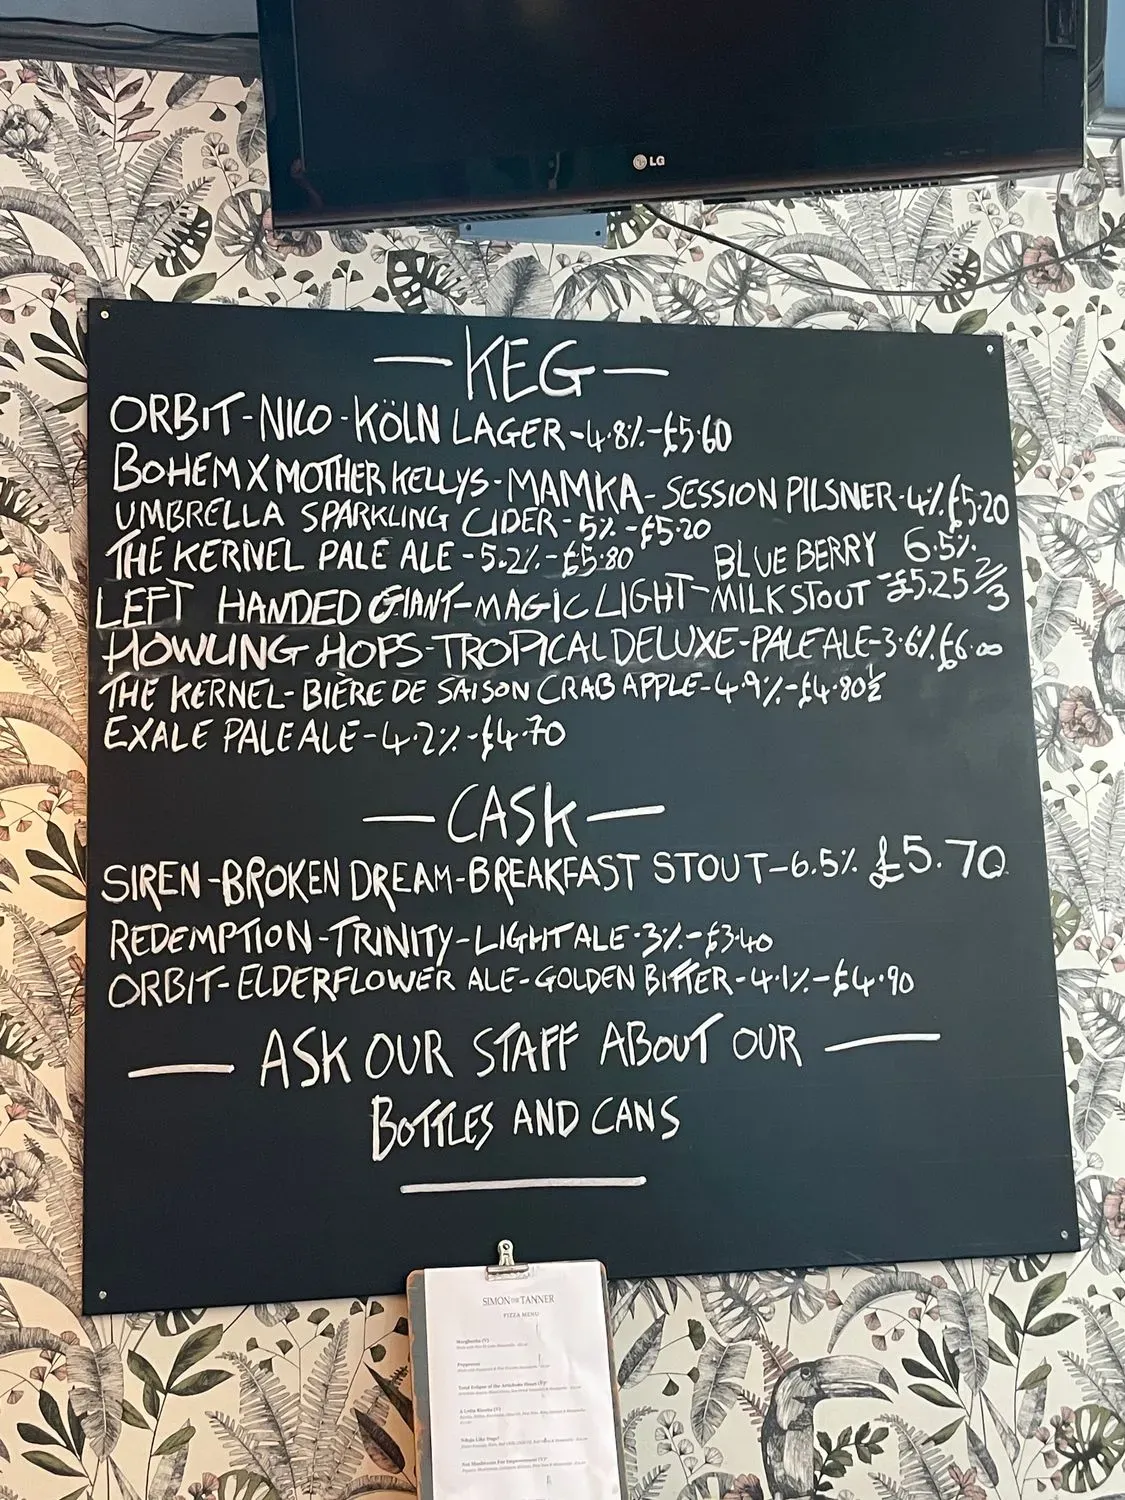 LG
— KEG —
ORBIT - NICO - KÖLN LAGER - 4.8% - £5.60
BOHEM X MOTHER KELLYS - MAMKA - SESSION PILSNER - 4% £5.20
UMBRELLA SPARKLING CIDER - 5% - £5.20
THE KERNEL PALE ALE - 5.2% - £5.80
BLUE BERRY 6.5%
LEFT HANDED GIANT - MAGIC LIGHT - MILK STOUT - £5.25 2/3
HOWLING HOPS - TROPICAL DELUXE - PALE ALE - 3.6% £6.00
THE KERNEL - BIÈRE DE SAISON CRAB APPLE - 4.9% - £4.80 ½
EXALE PALE ALE - 4.2% - £4.70
— CASK —
SIREN - BROKEN DREAM - BREAKFAST STOUT - 6.5% £5.70
REDEMPTION - TRINITY - LIGHT ALE - 3% - £3.40
ORBIT - ELDERFLOWER ALE - GOLDEN BITTER - 4.1% - £4.90
— ASK OUR STAFF ABOUT OUR —
BOTTLES AND CANS
SIMON THE TANNER
PIZZA MENU
Margherita (V)
Pepperoni
Total Eclipse of the Artichoke Heart (V)*
'Nduja Like Dags?
Not Mushroom For Improvement (V)*